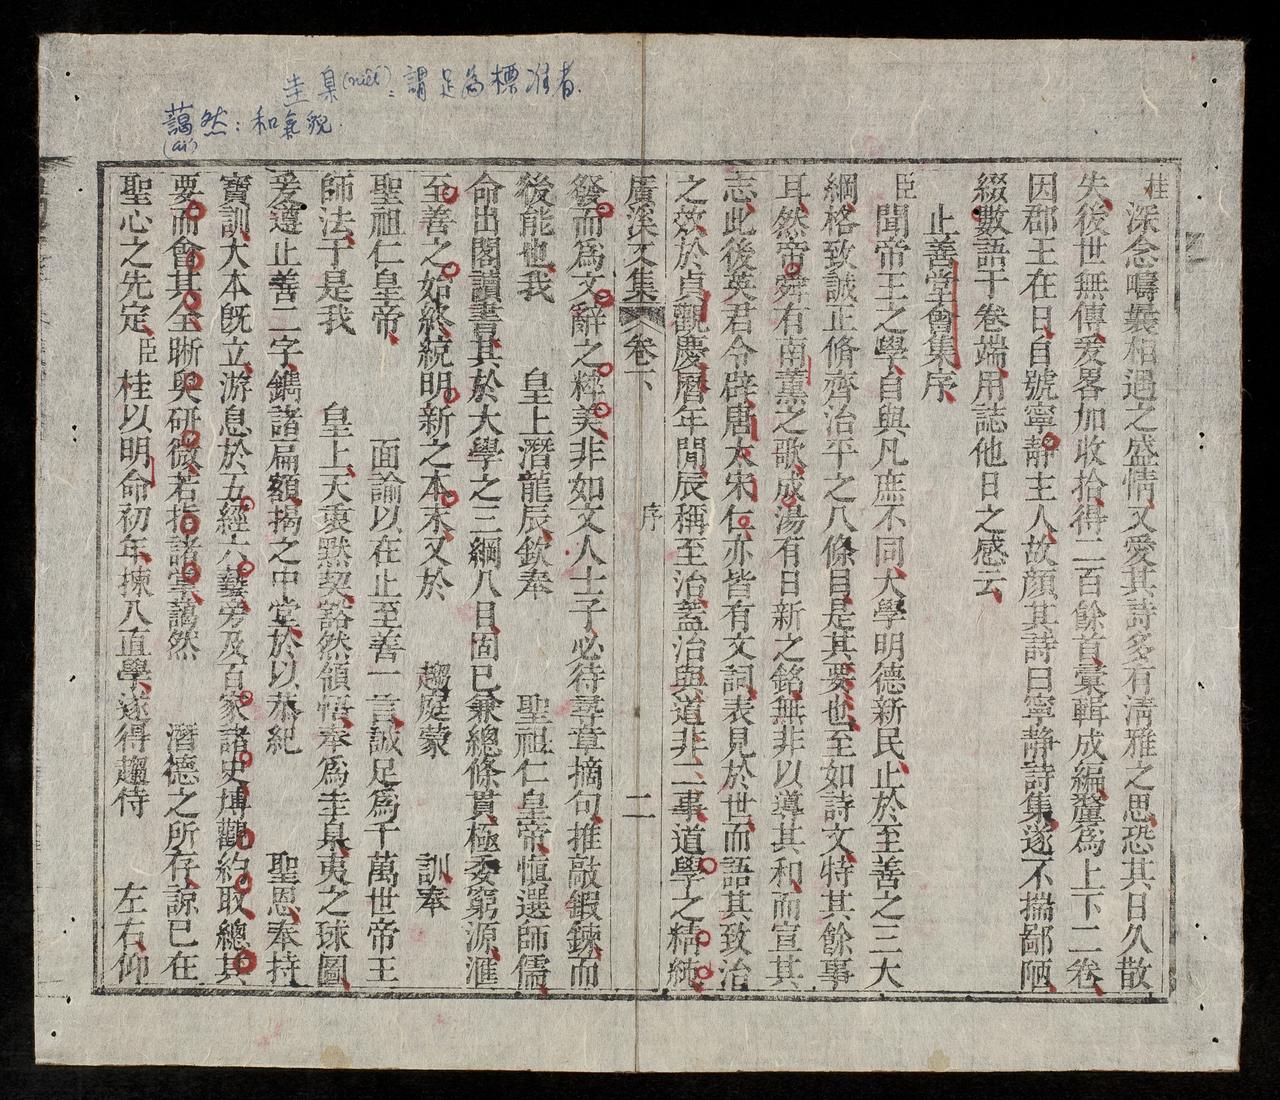 圭臬(niết): 謂足為標准者.
藹然: 和氣貌.
(ái)
桂深念疇曩相遇之盛情又愛其詩多有清雅之思恐其日久散
失後世無傳爰畧加收拾得二百餘首彙輯成編釐為上下二卷
因郡王在日自號寧靜主人故顏其詩曰寧静詩集遂不揣鄙陋
綴數語于卷端用誌他日之感云
止善堂會集序
臣聞帝王之學自與凡庶不同大學明德新民止於至善之三大
綱格致誠正脩齊治平之八條目是其要也至如詩文特其餘事
耳然帝舜有南薰之歌成湯有日新之銘無非以導其和而宣其
志此後英君令辟唐太宋仁亦皆有文詞表見於世而語其致治
之效於貞觀慶曆年間辰稱至治蓋治與道非二事道學之精純
廣溪文集 卷下 序 二
發而爲文辭之粹美非如文人士子必待尋章摘句推敲鍜鍊而
後能也我 皇上潛龍辰欽奉 聖祖仁皇帝慎選師儒
命出閣讀書其於大學之三綱八目固已兼總條貫極委窮源滙
至善之如終統明新之本末又於 趨庭蒙 訓奉
聖祖仁皇帝 面諭以在止至善一言誠足爲千萬世帝王
師法于是我 皇上天衷黙契豁然領悟奉爲圭臬夷之球圖
爰遵止善二字鐫諸扁額揭之中堂於以恭紀 聖恩奉持
寶訓大本旣立游息於五經六藝旁及百家諸史博觀約取總其
要而會其全晰奥研微若指諸掌藹然 潛德之所存諒已在
聖心之先定臣桂以明命初年揀入直學遂得趨侍 左右仰